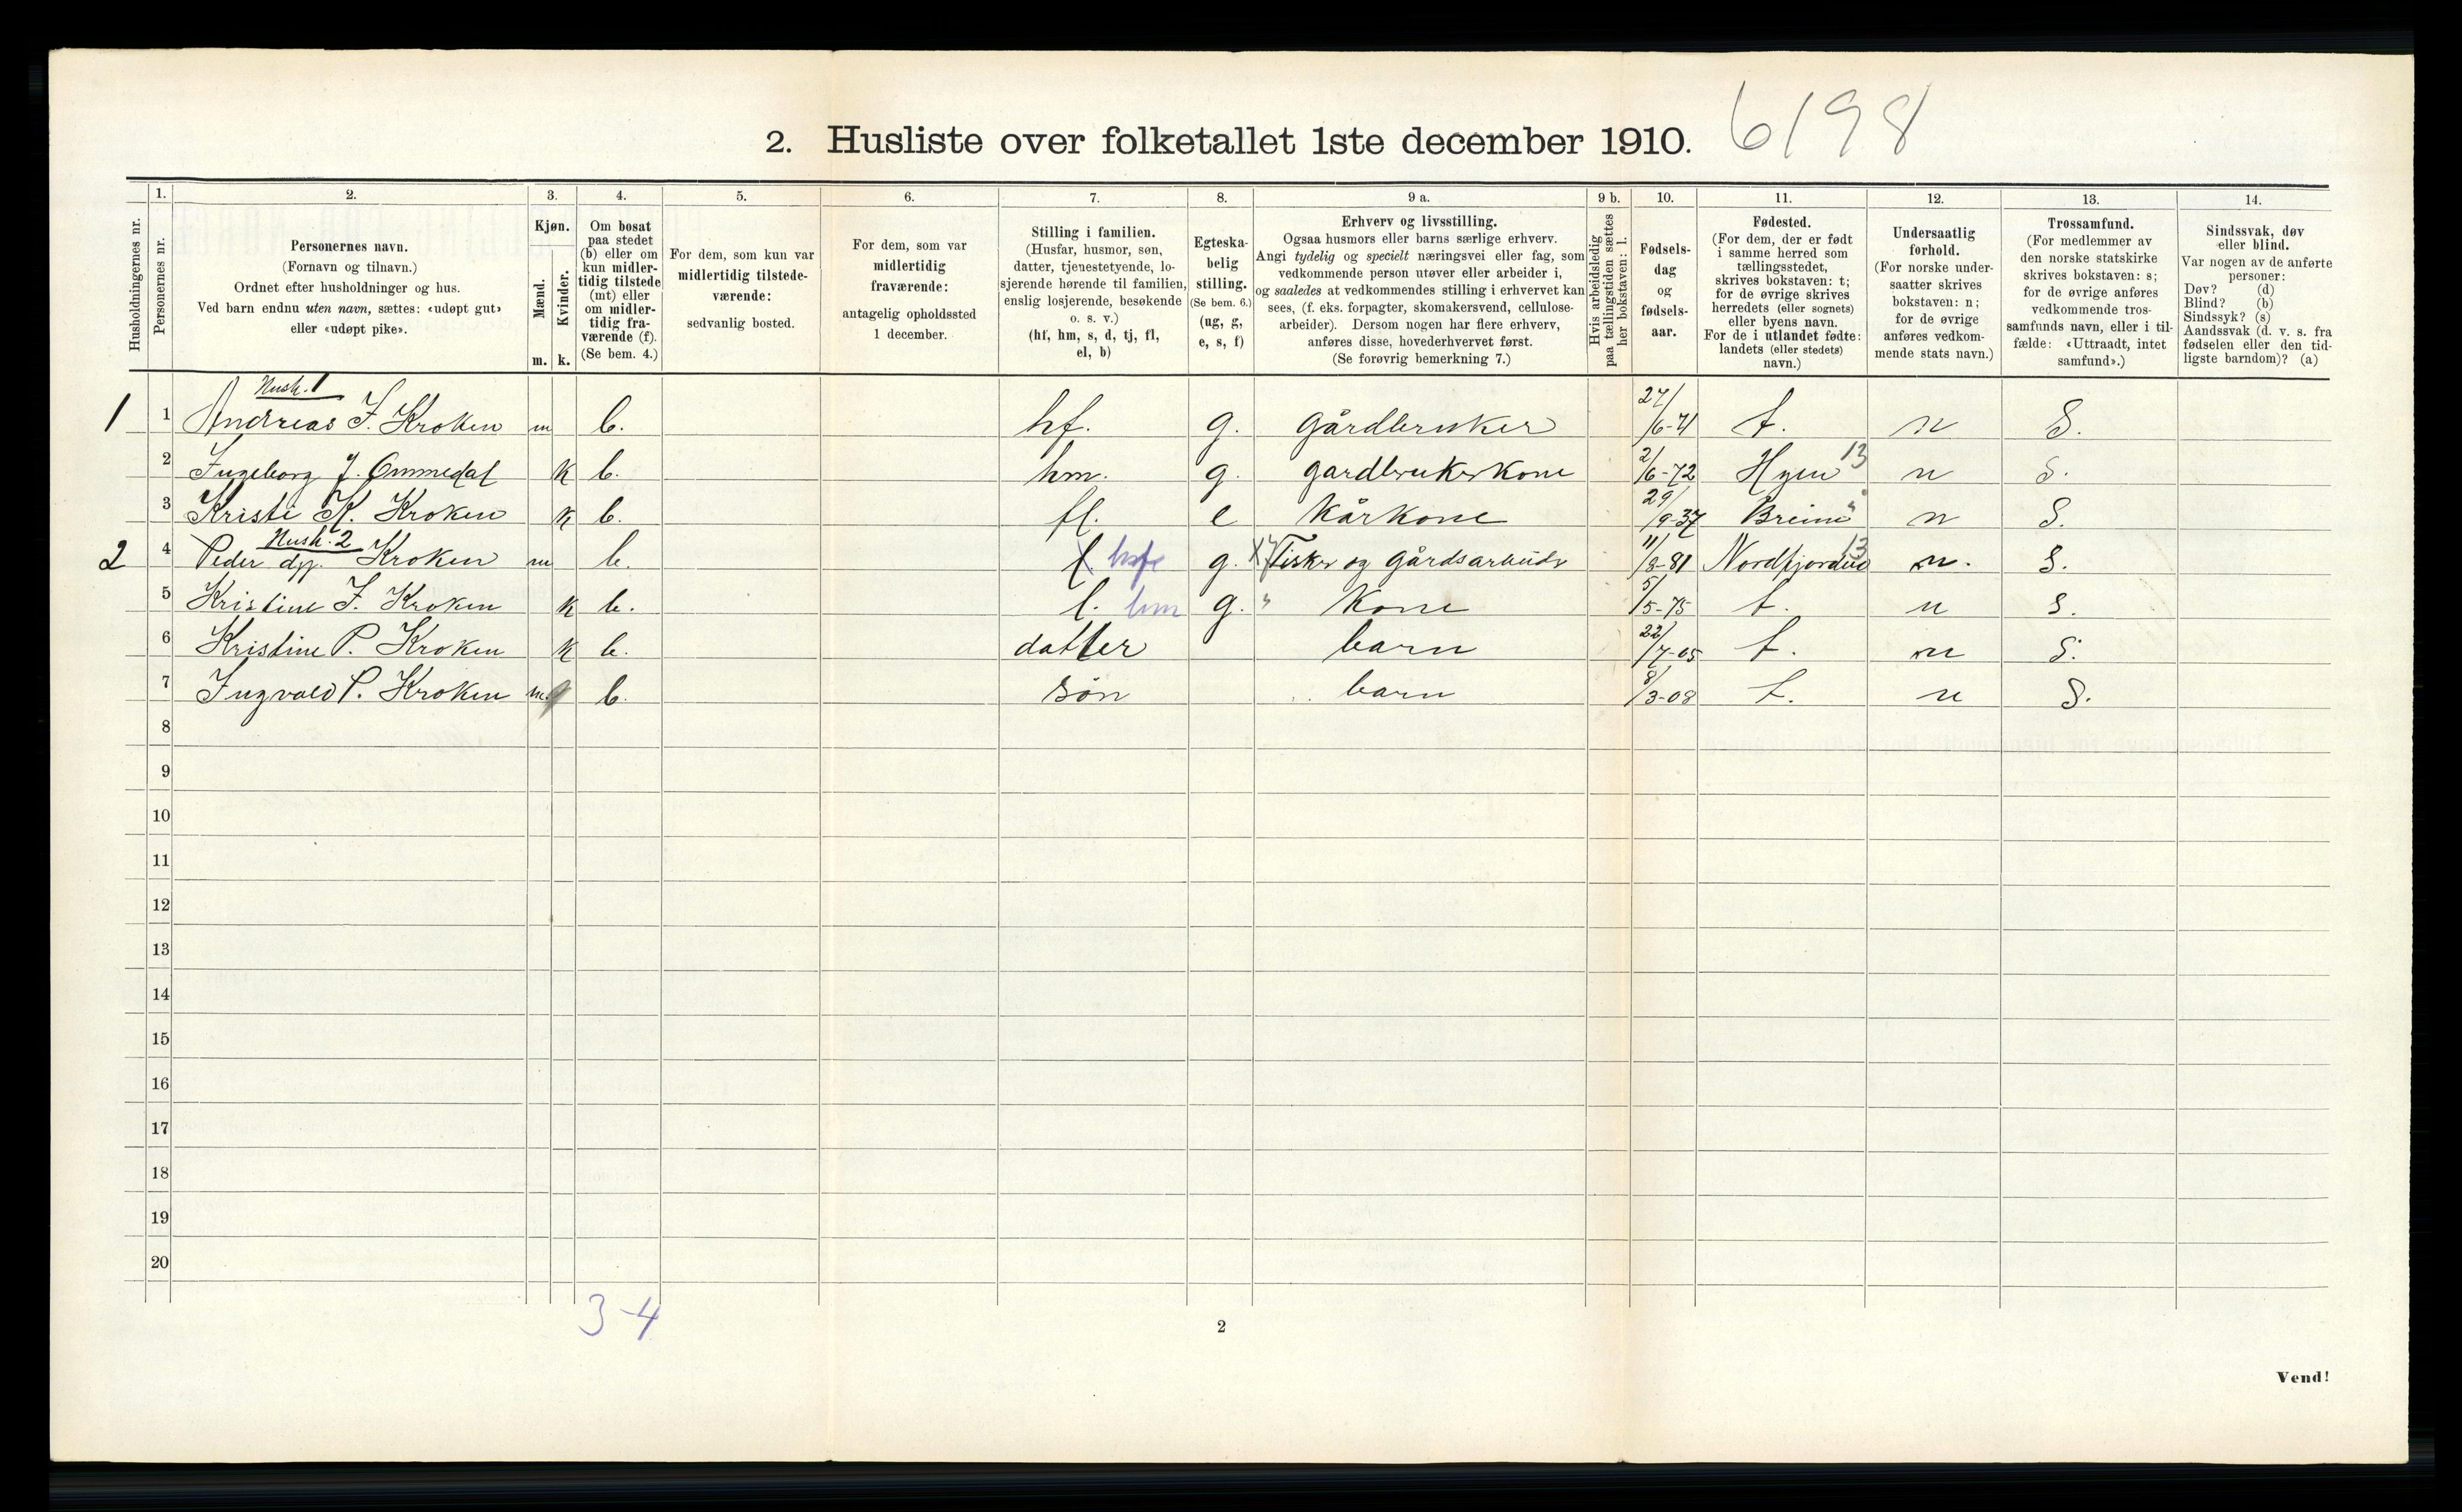 2. Husliste over folketallet 1ste december 1910. 6198
Husholdningernes nr.
1.
Personernes nr.
2.
Personernes navn.
(Fornavn og tilnavn.)
Ordnet efter husholdninger og hus.
Ved barn endnu uten navn, sættes: «udøpt gut»
eller «udøpt pike».
3.
Kjøn.
Mænd.
Kvinder.
m. k.
4.
Om bosat
paa stedet
(b) eller om
kun midler-
tidig tilstede
(mt) eller
om midler-
tidig fra-
værende (f).
(Se bem. 4.)
5.
For dem, som kun var
midlertidig tilstede-
værende:
sedvanlig bosted.
6.
For dem, som var
midlertidig
fraværende:
antagelig opholdssted
1 december.
7.
Stilling i familien.
(Husfar, husmor, søn,
datter, tjenestetyende, lo-
sjerende hørende til familien,
enslig losjerende, besøkende
o. s. v.)
(hf, hm, s, d, tj, fl,
el, b)
8.
Egteska-
belig
stilling.
(Se bem. 6.)
(ug, g,
e, s, f)
9 a.
Erhverv og livsstilling.
Ogsaa husmors eller barns særlige erhverv.
Angi tydelig og specielt næringsvei eller fag, som
vedkommende person utøver eller arbeider i,
og saaledes at vedkommendes stilling i erhvervet kan
sees, (f. eks. forpagter, skomakersvend, cellulose-
arbeider). Dersom nogen har flere erhverv,
anføres disse, hovederhvervet først.
(Se forøvrig bemerkning 7.)
9 b.
Hvis arbeidsledig
paa tællingstiden sættes
her bokstaven: l.
10.
Fødsels-
dag
og
fødsels-
aar.
11.
Fødested.
(For dem, der er født
i samme herred som
tællingsstedet,
skrives bokstaven: t;
for de øvrige skrives
herredets (eller sognets)
eller byens navn.
For de i utlandet fødte:
landets (eller stedets)
navn.)
12.
Undersaatlig
forhold.
(For norske under-
saatter skrives
bokstaven: n;
for de øvrige
anføres vedkom-
mende stats navn.)
13.
Trossamfund.
(For medlemmer av
den norske statskirke
skrives bokstaven: s;
for de øvrige anføres
vedkommende tros-
samfunds navn, eller i til-
fælde: «Uttraadt, intet
samfund».)
14.
Sindssvak, døv
eller blind.
Var nogen av de anførte
personer:
Døv? (d)
Blind? (b)
Sindssyk? (s)
Aandssvak (d. v. s. fra
fødselen eller den tid-
ligste barndom)? (a)
Hush. 1
1 1 Andreas J. Kroken m b. hf. g. gårdbruker 27/6-71 t. n S.
2 Ingeborg J. Ommedal k b. hm. g. gardbrukerkone 2/6-72 Hyen 13 n S.
3 Kristi K. Kroken k b. fl. e Kårkone 29/9-37 Breim " n S.
Hush. 2
2 4 Peder Kroken m b. g. Fisker og gårdsarbeider 11/8-81 Nordfjordeid 13 n. S.
5 Kristine J. Kroken k b. l. hm g. " Kone 5/5-75 t. n S.
6 Kristine P. Kroken k b. datter barn 22/7-05 t. n S.
7 Ingvald P. Kroken m. b. søn barn 8/3-08 t. n S.
8
9
10
11
12
13
14
15
16
17
18
19
20
3-4
2
Vend!